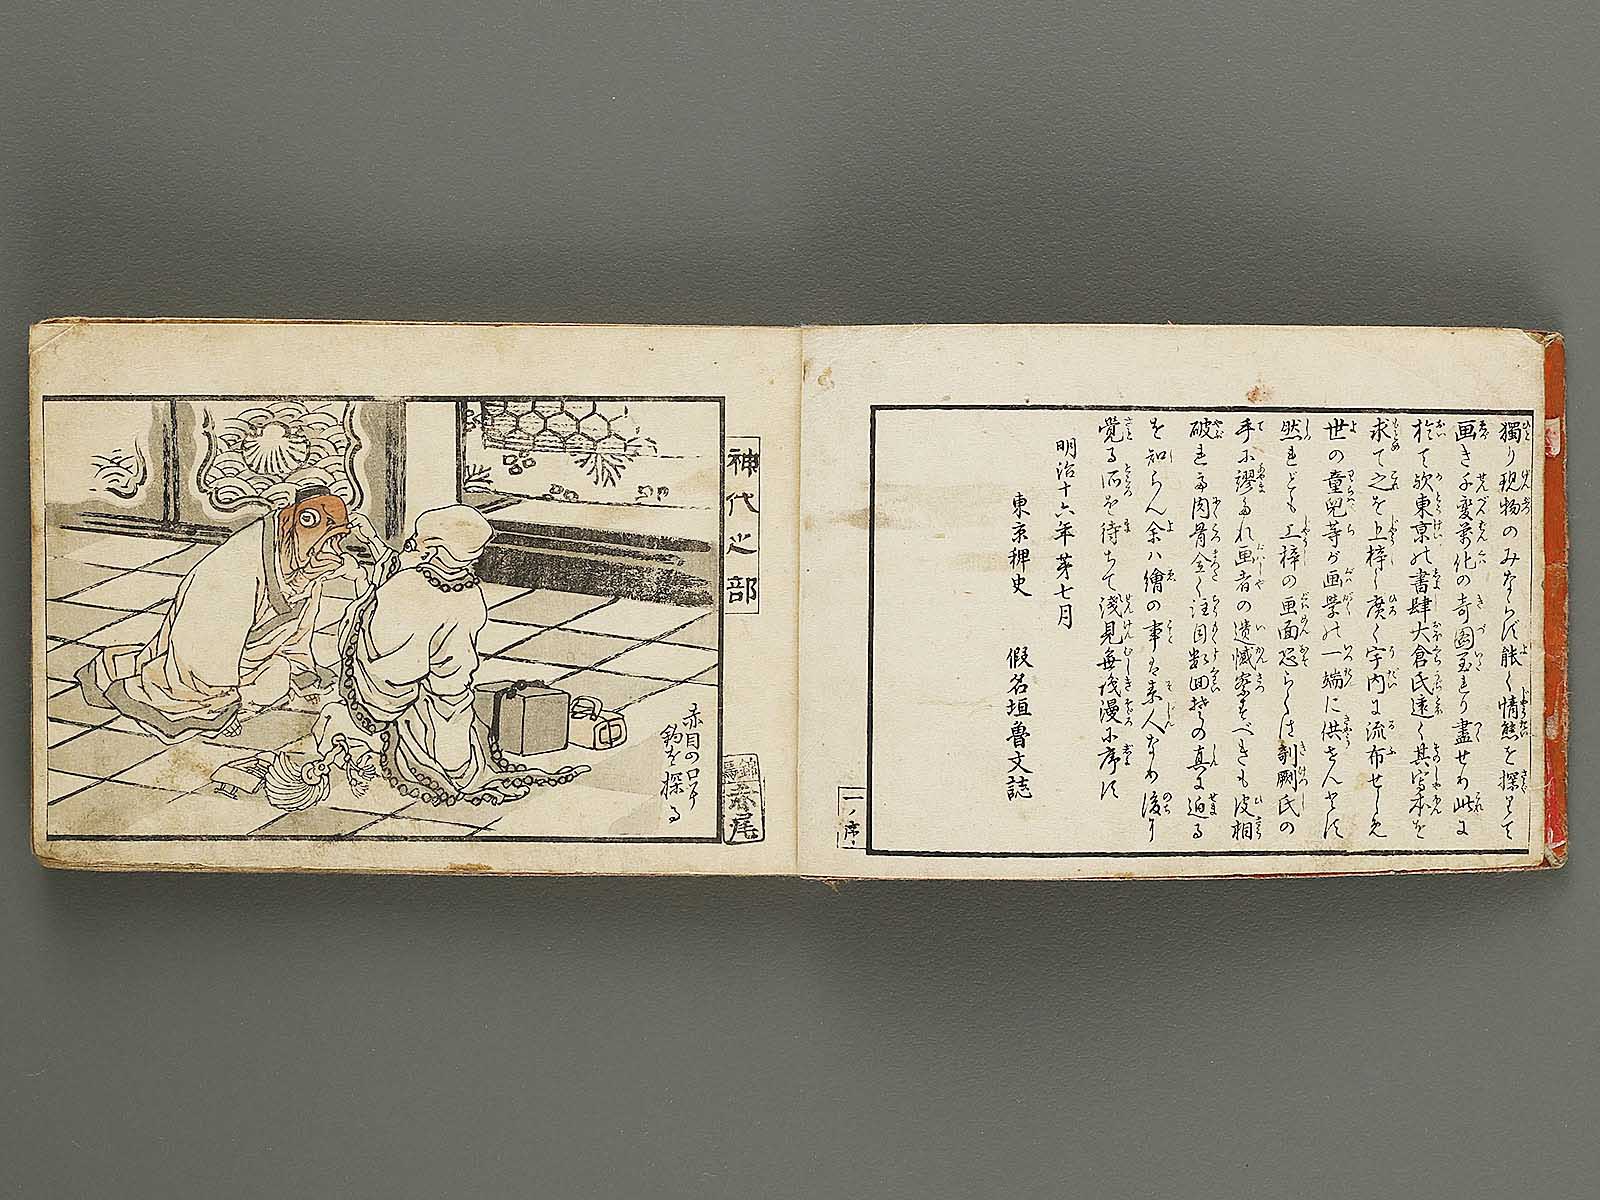 獨り現物のみならず能く情態を探りて
画き千変萬化の奇圖至れり盡せり此に
於て歟東京の書肆大倉氏遠く其写本を
求て之を上梓し広く宇内に流布せしめ
世の童児等が画学の一端に供せんとす
然れども上梓の画面恐らくは剞劂氏の
手に謬られ画者の遺憾察すべきも皮相
破れ
を知らん余ハ繪の事は素人なれ
覚る所を待ちて浅見無識漫に序す
明治十六年第七月
東京稗史 假名垣魯文誌
一ノ序
神代之部
赤尾
赤目の口中
鈎を探る